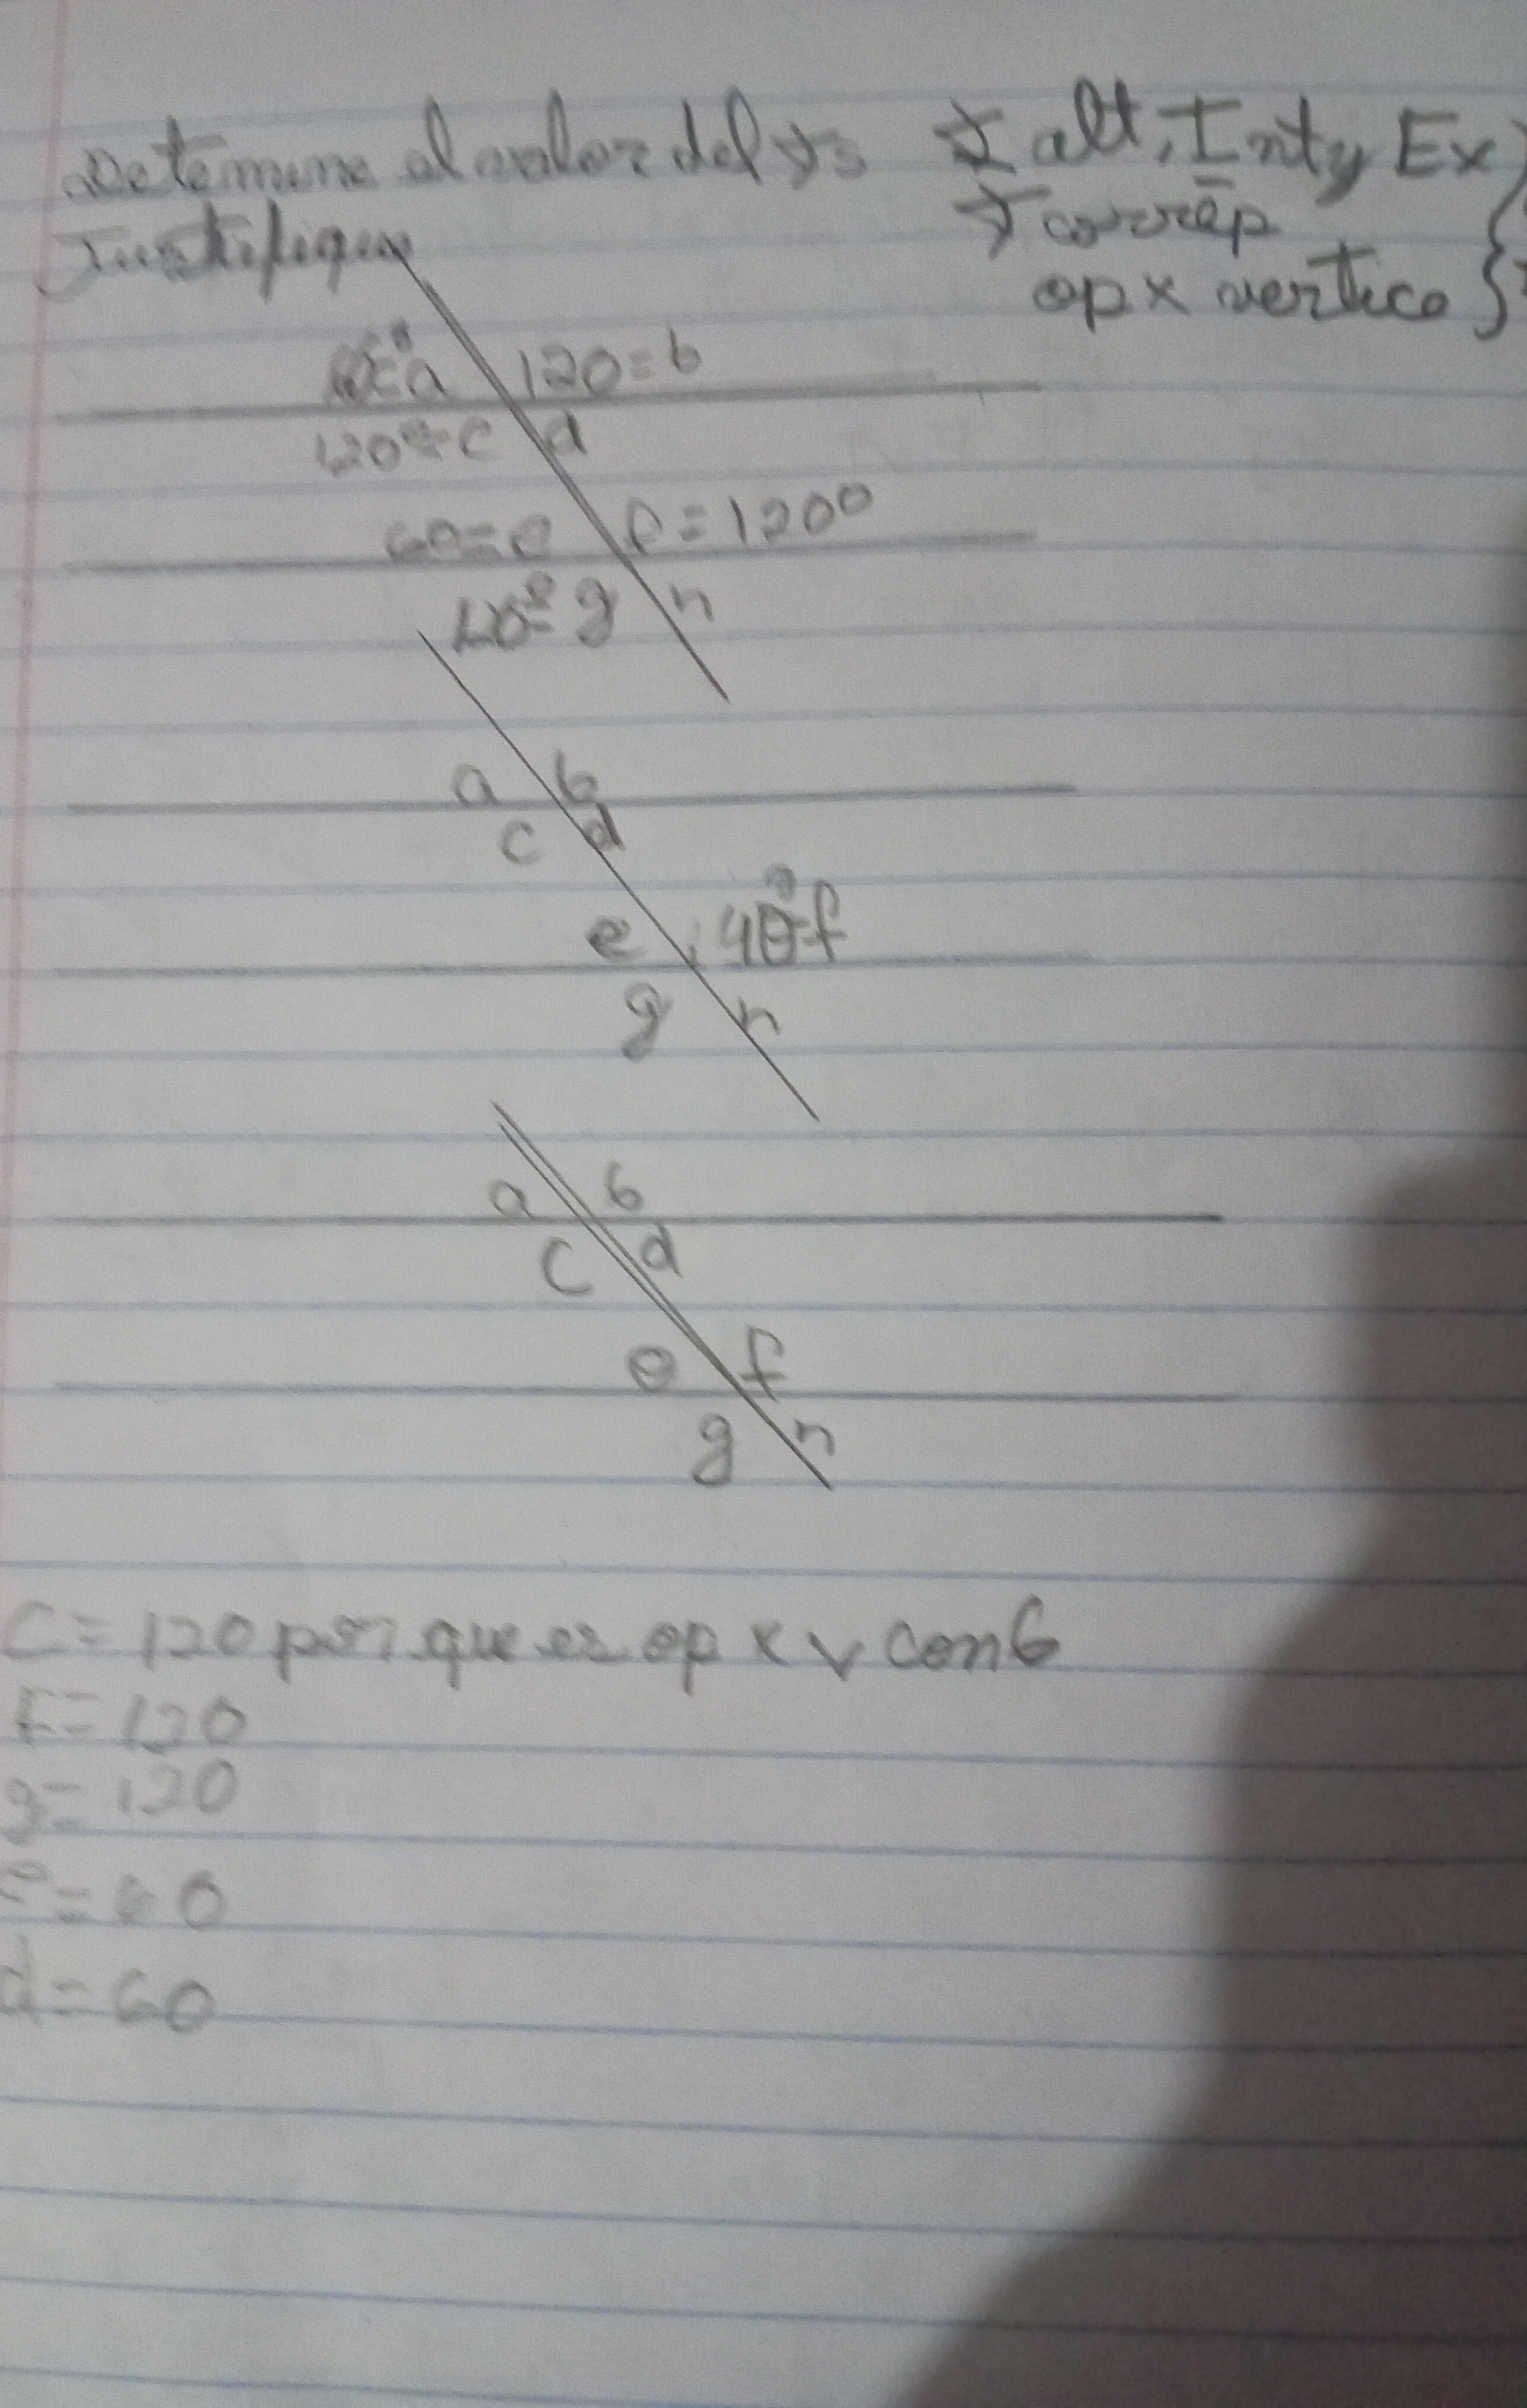 Detemine el valor del ∡s ∡ alt, Int y Ex
Justifique ∡ corresp
op x vertice }
a 120=b
120°=c d
60=e f=120°
120°=g h
a b
c d
e 40°=f
g h
a b
c d
e f
g h
C=120 por que es op x v con b
F=120
g=120
e=60
d=60